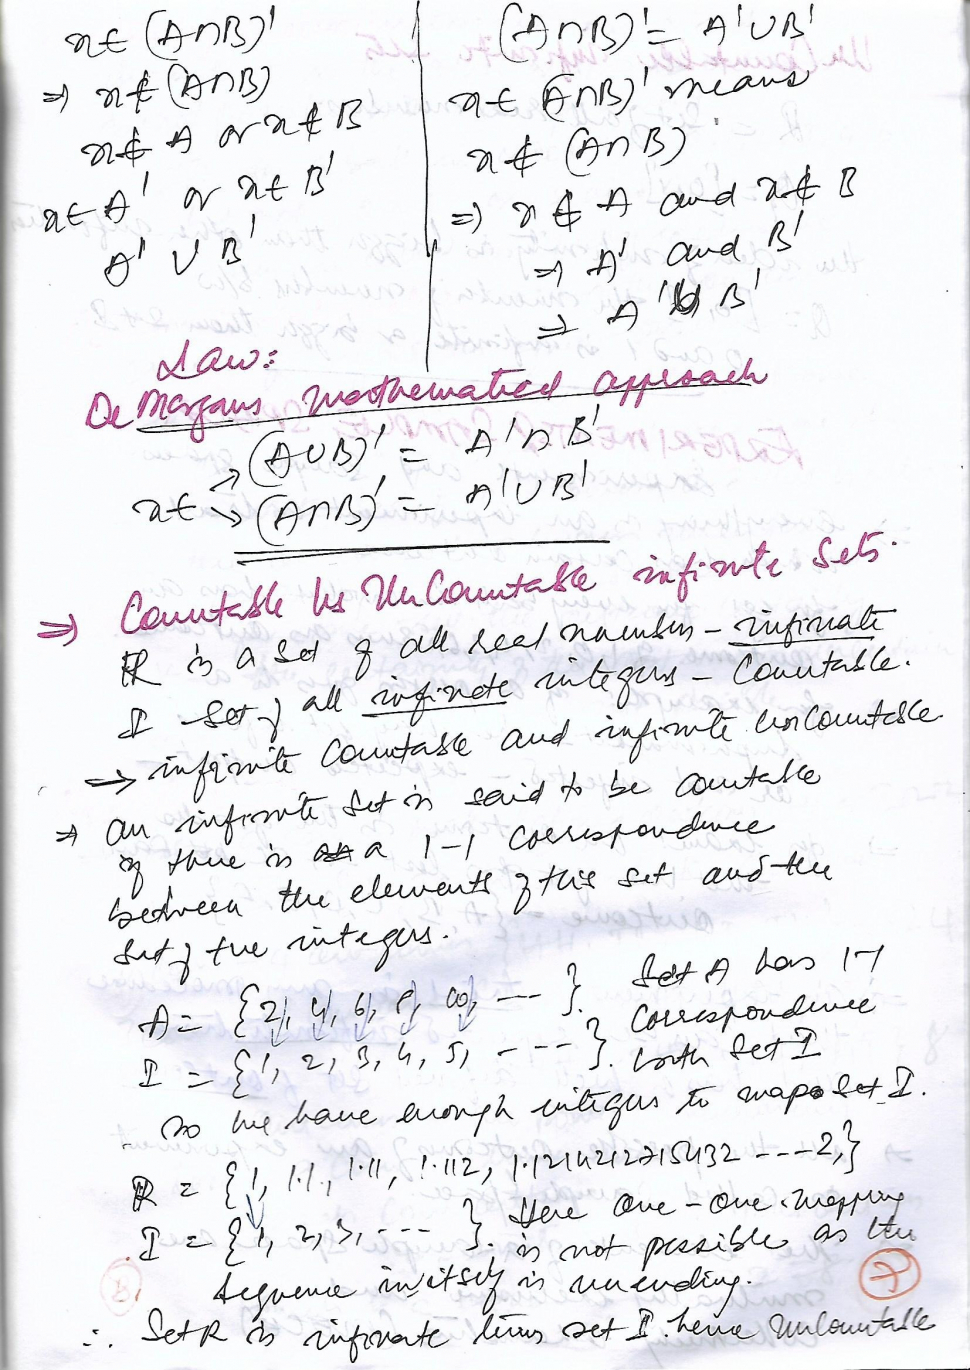 x ∈ (A∩B)'
⇒ x ∉ (A∩B)
x ∉ A or x ∉ B
x ∈ A' or x ∈ B'
A' ∪ B'
(A∩B)' = A'∪B'
x ∈ (A∩B)' means
x ∉ (A∩B)
⇒ x ∉ A and x ∉ B
⇒ A' and B'
⇒ A' ∪ B'
Law:
De Morgans mathematical approach
(A∪B)' = A'∩B'
x ∈
(A∩B)' = A'∪B'
⇒ Countable Vs UnCountable infinite Sets.
R is a set of all real numbers - infinite
I set of all infinite integers - Countable.
→ infinite Countable and infinite unCountable.
⇒ an infinite set is said to be countable
if there is a 1-1 correspondence
between the elements of this set and the
set of the integers.
A = {2, 4, 6, 8, 10, --- }. Set A has 1-1
I = {1, 2, 3, 4, 5, - --- }. Correspondence
with Set I
so we have enough integers to map Set I.
R = {1, 1.1, 1.11, 1.112, 1.1214212715432 --- 2,}
I = {1, 2, 3, --- }. Here one-one mapping
is not possible as the
sequence in itself is unending.
∴ Set R is infinite times set I hence Uncountable
7